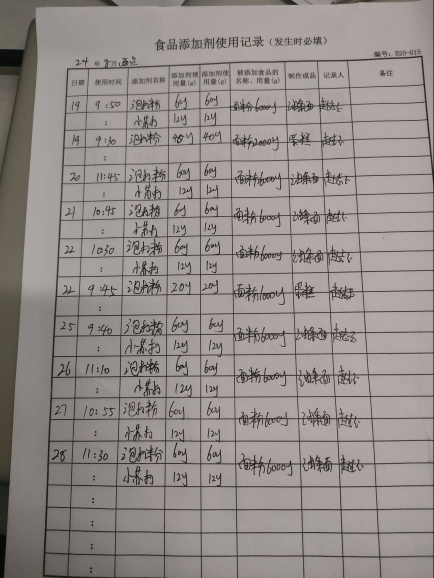 食品添加剂使用记录（发生时必填）
24 年 8 月 面点 编号：H20-015
日期 使用时间 添加剂名称 添加剂领用量(g) 添加剂使用量(g) 被添加食品的名称、用量(g) 制作成品 记录人 备注
19 9:50 泡打粉 60g 60g 面粉6000g 油条面
: 小苏打 12g 12g
19 9:30 泡打粉 40g 40g 面粉2000g 蛋糕
:
20 11:45 泡打粉 60g 60g 面粉6000g 油条面
: 小苏打 12g 12g
21 10:45 泡打粉 60g 60g 面粉6000g 油条面
: 小苏打 12g 12g
22 10:30 泡打粉 60g 60g 面粉6000g 油条面
: 小苏打 12g 12g
22 9:45 泡打粉 20g 20g 面粉1000g 蛋糕
:
25 9:40 泡打粉 60g 60g 面粉6000g 油条面
: 小苏打 12g 12g
26 11:10 泡打粉 60g 60g 面粉6000g 油条面
: 小苏打 12g 12g
27 10:55 泡打粉 60g 60g 面粉6000g 油条面
: 小苏打 12g 12g
28 11:30 泡打粉 60g 60g 面粉6000g 油条面
: 小苏打 12g 12g
:
:
:
: